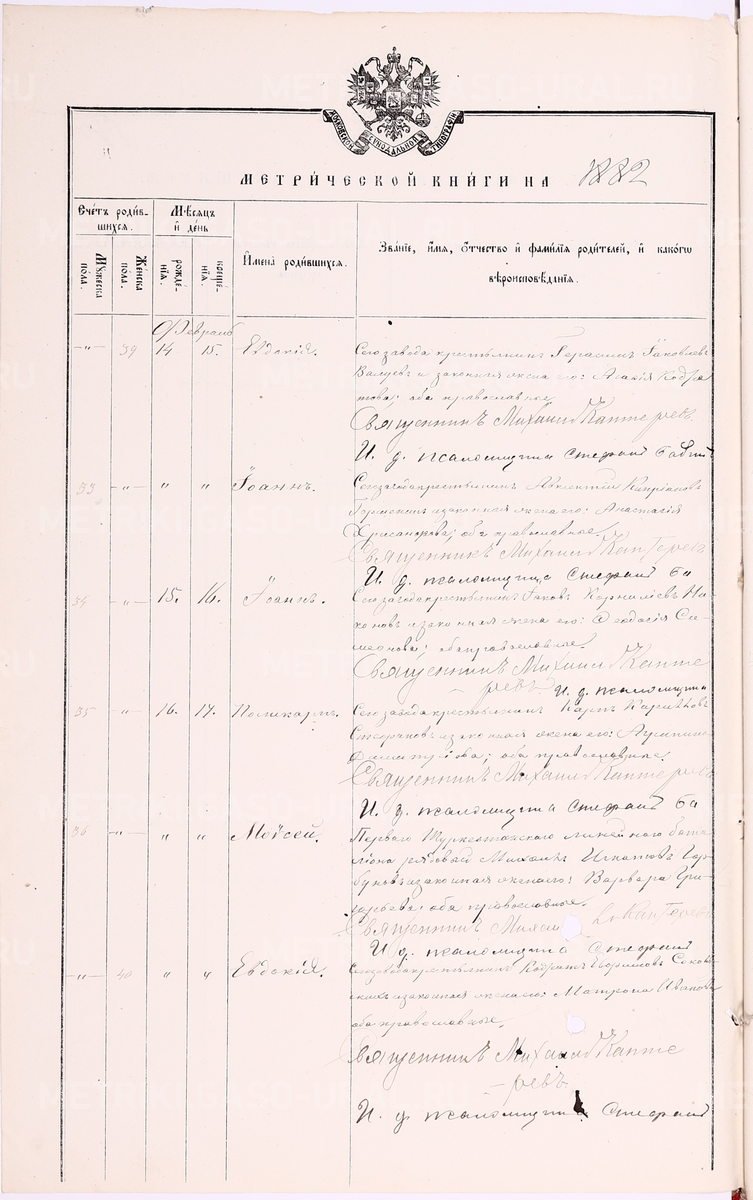 МОСКОВСКОЙ СѴНОДАЛЬНОЙ ТИПОГРАФІИ
МЕТРИ́ЧЕСКОЙ КНИ́ГИ НА 1882
Сче́тъ роди́в-
шихся.
Мѣ́сяцъ
и҆ де́нь
Мꙋ́жеска
по́ла.
Же́нска
по́ла.
рожде́-
нїѧ.
креще́-
нїѧ.
И҆мена̀ роди́вшихся.
Зва́нїе, и҆́мѧ, ѻ҆́тчество и҆ фами́лїѧ роди́телей, и҆ како́гѡ
вѣроисповѣ́данїѧ.
Февраль
–„– 39 14 15. Евдокія. Сего завода крестьянинъ Герасимъ Іаковлевъ
и законная жена его: Кодра
това; оба православные.
Священникъ Михаилъ Каптеревъ
И. д. псаломщика Стефанъ
33 –„– „ „ Іоаннъ. Сего завода крестьянинъ
и законная жена его: Анастасія
Хрисанфова; оба православные.
Священникъ Михаилъ Каптеревъ
И. д. псаломщика Стефанъ Ба
34 –„– 15. 16. Іоаннъ. Сего завода крестьянинъ Іаковъ Корниліевъ На
коновъ и законная жена его: Ѳеодосія Си
меонова; оба православные.
Священникъ Михаилъ Капте
ревъ. И. д. псаломщика
35 –„– 16. 17. Поликарпъ. Сего завода крестьянинъ Карпъ
и законная жена его: Агрипина
Димитріева; оба православные.
Священникъ Михаилъ Каптеревъ
И. д. псаломщика Стефанъ Ба
36 –„– „ „ Моѵсей. Перваго Туркестанскаго линейнаго бата
ліона рядовой Михаилъ Игнатовъ Гор
буновъ и законная жена его: Варвара Гри
горьева; оба православные.
Священникъ Михаи Каптеревъ
И. д. псаломщика Стефанъ
–„– 40 „ „ Евдокія. Сего завода крестьянинъ Кодратъ
и законная жена его: Матрона Иванова
оба православные.
Священникъ Михаилъ Капте
ревъ
И. д. псаломщика Стефанъ